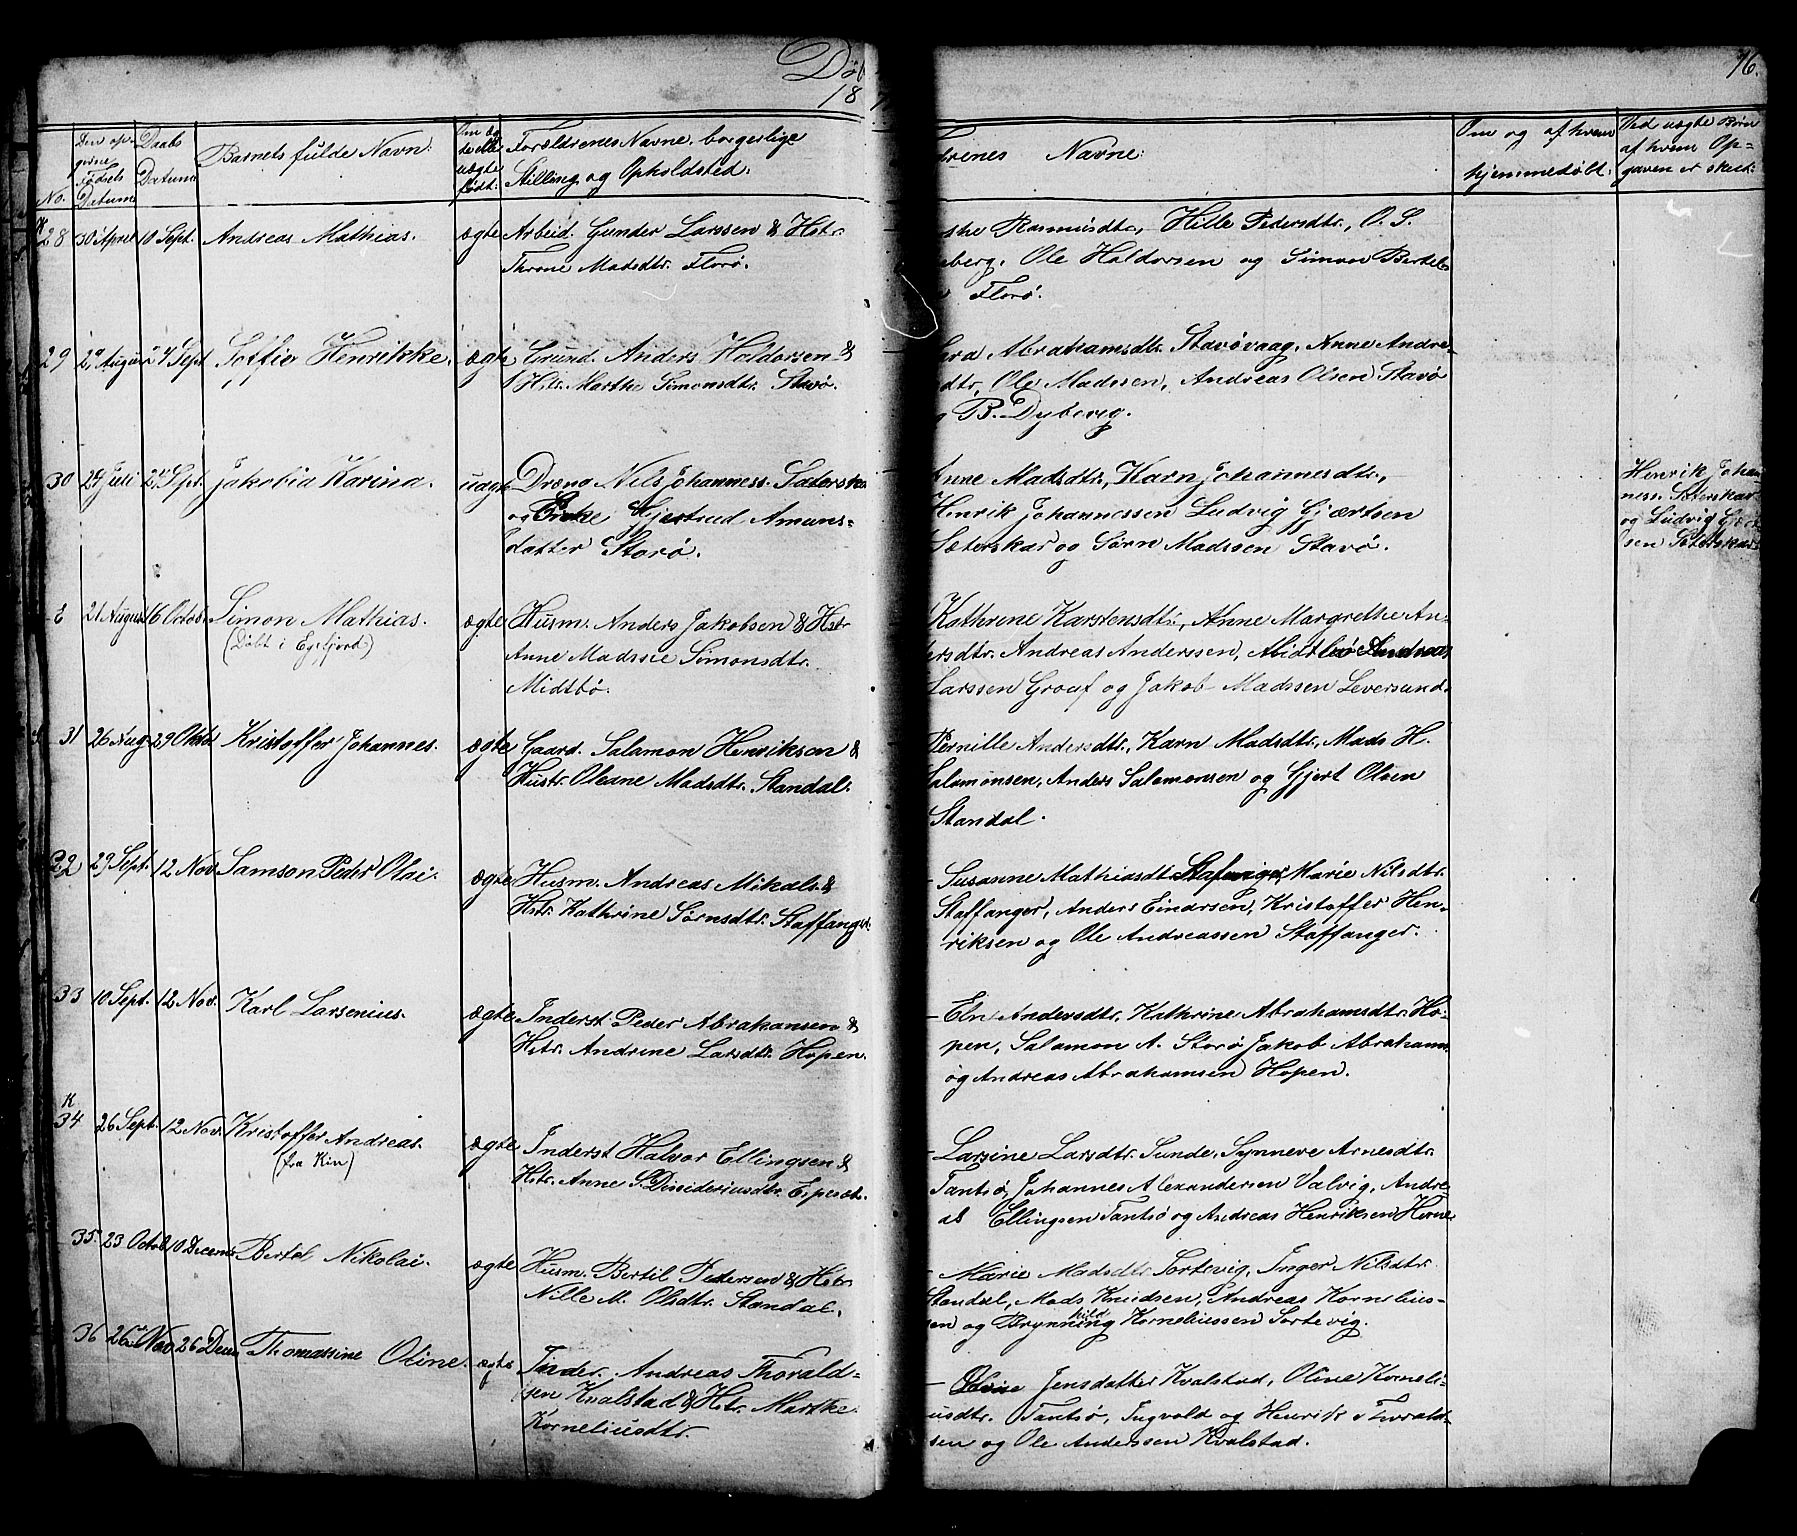 Døb
18
76.
No.
Den op-
givne
Fødsels
Datum
Daabs
Datum
Barnets fulde Navn:
Om æg
te elle
uægte
født.
Forældrenes Navne, borgerlige
Stilling og Opholdsted.
drenes Navne:
Om og af hvem
hjemmedøbt.
Ved uægte Børn
af hvem Op-
gaven er skeet.
K
28 30 April 10 Sept. Andreas Mathias. ægte Arbeid. Gunder Larssen & Hstr.
Throne Madsdtr. Florø.
ske Rasmusdtr, Hille Pedersdtr., O. S.
berg. Ole Haldorsen og Simon Bertels
Florø.
29 2 August 24 Sept Soffie Henrikke. ægte Grund. Anders Haldorsen &
Hstr. Marthe Simonsdtr. Stavø.
Abrahamsdtr. Stavøvaag, Anne Andre-
dtr, Ole Madssen, Andreas Olsen Stavø
B. Dybevig.
30 24 Juli 24 Sept. Jakobia Karina. uægte Dreng Nils Johanness. Sæterska
og Enke Gjertrud Amuns-
datter Storø.
Anne Madsdtr, Karn Johannesdtr,
Henrik Johannessen Ludvig Gjærtsen
Sæterskar og Sørn Madssen Stavø.
Henrik Johan
ness. Sæterskar
og Ludvig Gjert
sen Sæterskar
E 21 August 16 Octob. Simon Mathias. ægte Husm. Anders Jakobsen & Hstr
(Døbt i Egefjord)
Anne Madssie Simonsdtr.
Midtbø.
Kathrine Karstensdtr, Anne Margrethe An-
dersdtr. Andreas Anderssen, Midtbø Andreas
Larssen Grouf og Jakob Madssen Leversund.
31 26 Aug. 29 Oktb Kristoffer Johannes. ægte Gaard. Salamon Henriksen &
Hustr. Oleane Madsdtr. Standal.
Pernille Andersdtr, Karn Madsdtr, Mads H.
Salamonsen, Anders Salamonsen og Gjert Olsen
Standal.
32 29 Sept. 12 Nov. Samson Peder Olai. ægte Husm. Andreas Mikals. &
Hstr. Kathrine Sørnsdtr. Staffanger.
Susanne Mathiasdt. Stafanger, Marie Nilsdtr.
Staffanger, Anders Eindrsen, Kristoffer Hen-
riksen og Ole Andreassen Staffanger.
33 10 Sept. 12 Nov. Karl Larsenius. ægte Inderst Peder Abrahamsen &
Hstr. Andrine Larsdtr. Hopen.
Eln Andersdtr. Kathrine Abrahamsdtr. Ho-
pen, Salamon A. Storø Jakob Abrahams
og Andreas Abrahamsen Hopen.
K
34 26 Sept. 12 Nov. Kristoffer Andreas. ægte Inderst Halvor Ellingsen &
(fra Kin)
Hstr. Anne S. Dissideriusdtr. Espeset.
Larsine Larsdtr. Sunde, Synneve Arnesdtr.
Tansø, Johannes Alexandersen Valvig, Andre-
as Ellingsen Tansø og Andreas Henriksen Horne
35. 23 Octob 10 Decemb Bertel Nikolai. ægte Husm. Bertil Pedersen & Hstr.
Nille M. Olsdtr. Standal.
Marie Madsdtr Sortevig, Inger Nilsdtr.
Standal, Mads Knudsen, Andreas Kornelius-
sen og Brynning Korneliussen Sortevig.
hild
36 26 Nov 26 Decm Thomassine Oline. ægte Inder. Andreas Thorald-
sen Kvalstad & Hstr. Marthe
Korneliusdtr.
Oline Jensdatter Kvalstad, Oline Korneli-
usdtr. Tansø, Ingvald og Henrik Torald-
sen og Ole Anderssen Kvalstad.